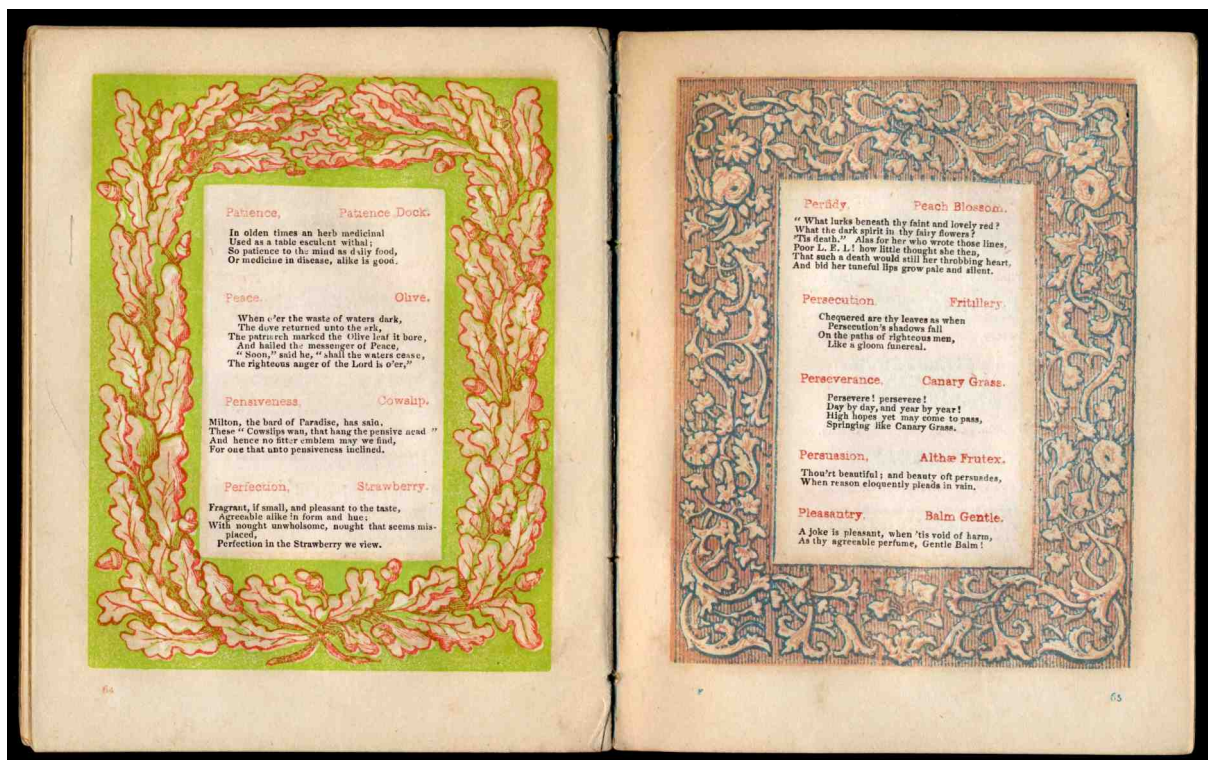 Patience, Patience Dock.
In olden times an herb medicinal
Used as a table esculent withal;
So patience to the mind as daily food,
Or medicine in disease, alike is good.
Peace. Olive.
When o'er the waste of waters dark,
The dove returned unto the ark,
The patriarch marked the Olive leaf it bore,
And hailed the messenger of Peace,
"Soon," said he, "shall the waters cease,
The righteous anger of the Lord is o'er,"
Pensiveness, Cowslip.
Milton, the bard of Paradise, has said,
These "Cowslips wan, that hang the pensive head"
And hence no fitter emblem may we find,
For one that unto pensiveness inclined.
Perfection, Strawberry.
Fragrant, if small, and pleasant to the taste,
Agreeable alike in form and hue;
With nought unwholesome, nought that seems mis-
placed,
Perfection in the Strawberry we view.
64
Perfidy, Peach Blossom.
"What lurks beneath thy faint and lovely red?
What the dark spirit in thy fairy flowers?
'Tis death." Alas for her who wrote those lines,
Poor L. E. L! how little thought she then,
That such a death would still her throbbing heart,
And bid her tuneful lips grow pale and silent.
Persecution. Fritillary.
Chequered are thy leaves as when
Persecution's shadows fall
On the paths of righteous men,
Like a gloom funereal.
Perseverance, Canary Grass.
Persevere! persevere!
Day by day, and year by year!
High hopes yet may come to pass,
Springing like Canary Grass.
Persuasion, Althæ Frutex.
Thou'rt beautiful; and beauty oft persuades,
When reason eloquently pleads in vain.
Pleasantry. Balm Gentle.
A joke is pleasant, when 'tis void of harm,
As thy agreeable perfume, Gentle Balm!
F
65